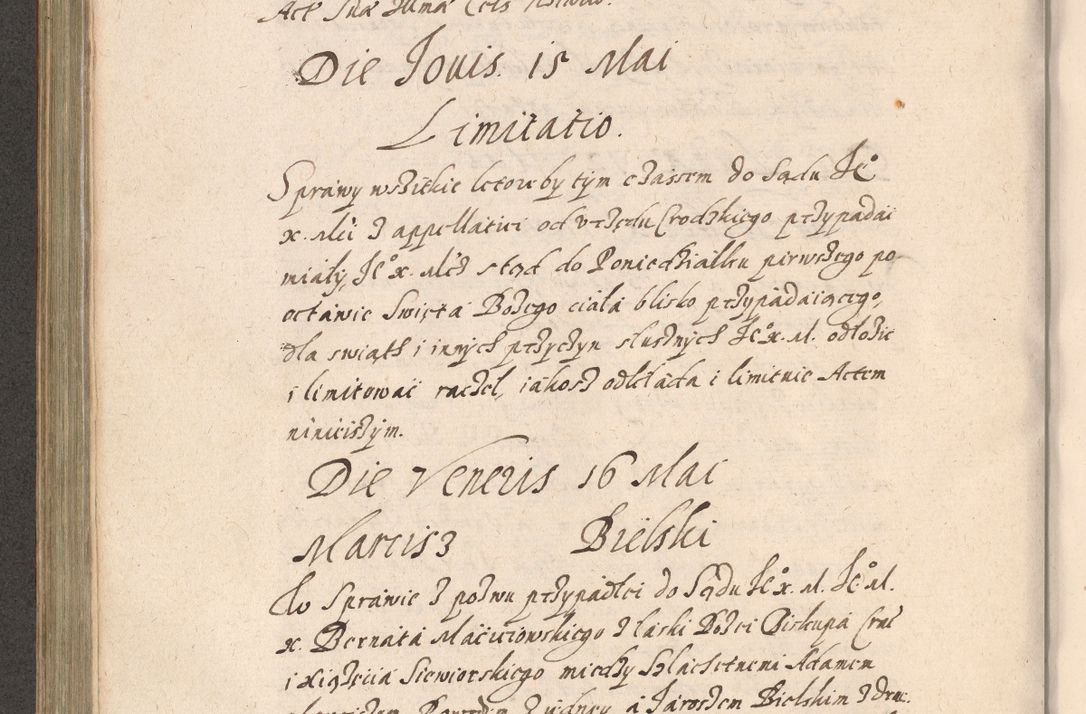 Die Jouis. 15 Mai
Limitatio.
Sprawy wszitkie ktore by tym czassem do Sądu Je°
x. Mci z appellatiei od vrzędu Grodzkiego przypadai
miały, Je° x. Mcz stąd do Poniedziałku pierwszego po
octawie Swięta Bożego ciała blisko przypadaiącego,
dla swiąth i innych przyczyn słusznych Je°x. M. odłożic
i limitowac raczeł, iakosz odkłada i limituie Actem
ninieiszym.
Die Veneris 16 Mai
Marcisz Bielski
W Sprawie z pozwu przypadłei do Sądu Je° x. M. Je° M.
x. Bernata Macieiowskiego z łaski Bożei Biskupa Cra
i xiążęcia Siewiorskiego miedzy Szlachetnemi Adamem
i Jaroszem Bielskim z dru